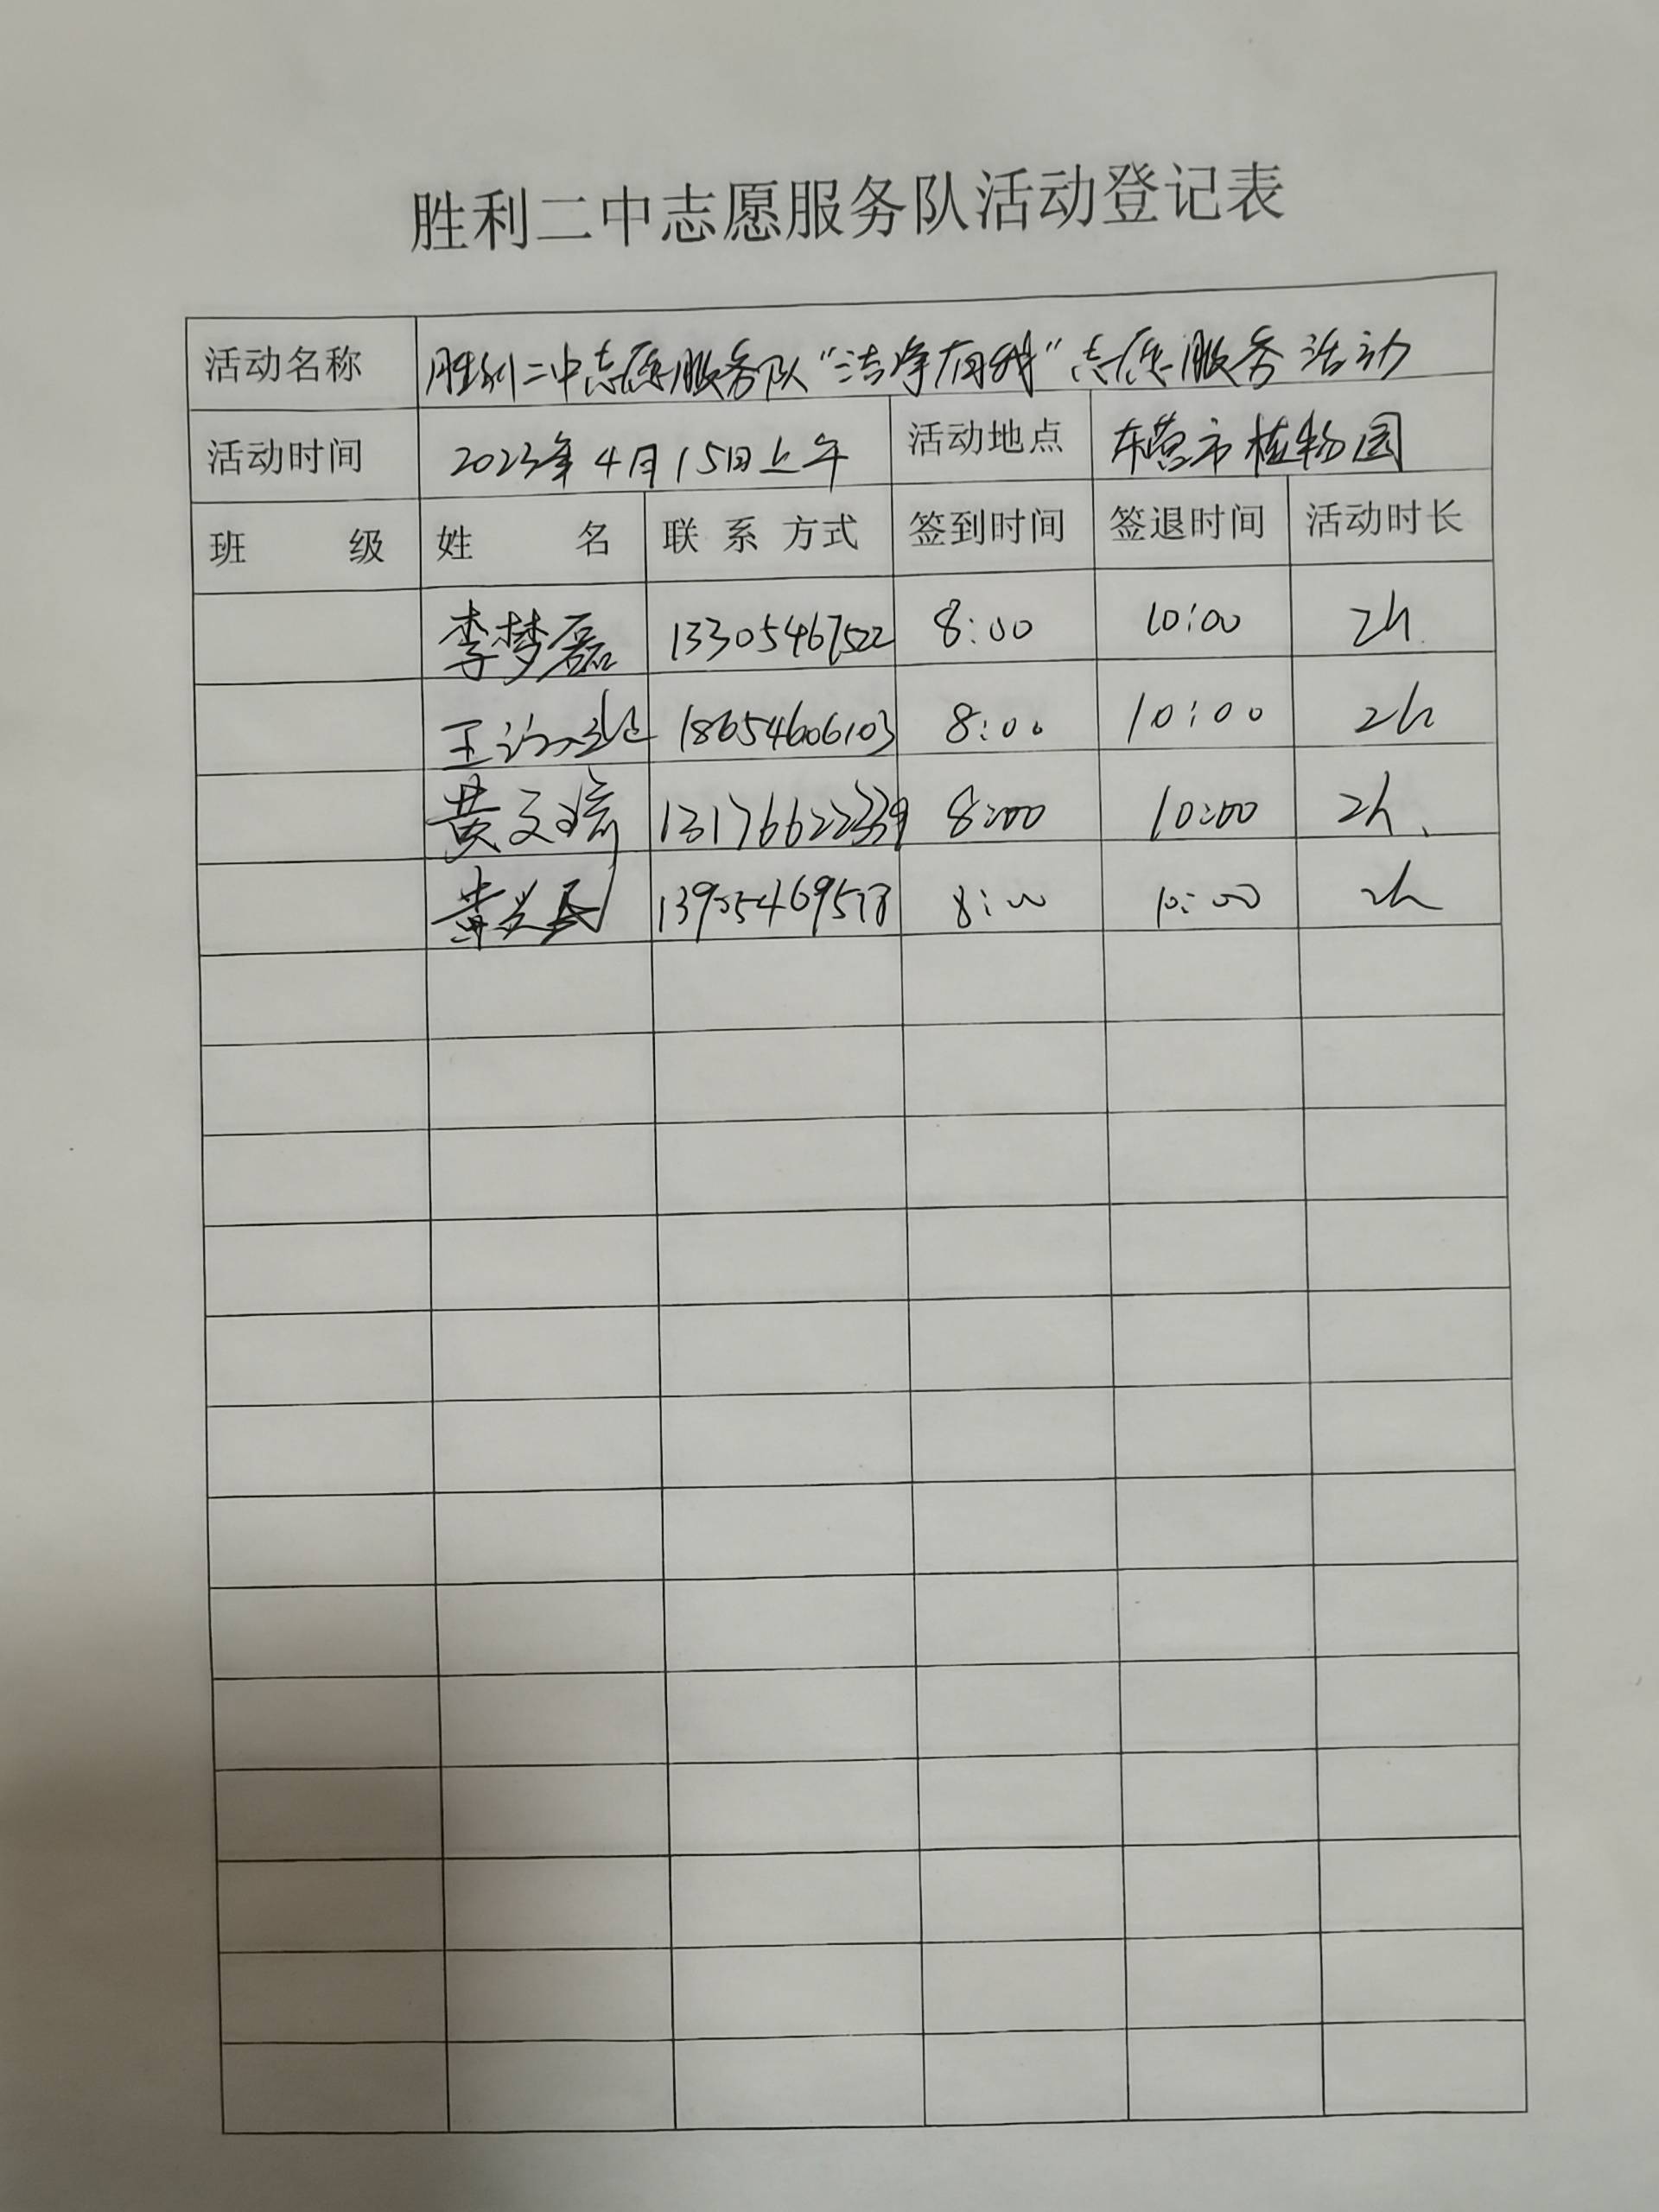 胜利二中志愿服务队活动登记表
活动名称 胜利二中志愿服务队"洁净有我"志愿服务活动
活动时间 2023年4月15日上午 活动地点 东营市植物园
班 级 姓 名 联 系 方式 签到时间 签退时间 活动时长
李梦磊 13305467522 8:00 10:00 2h
王 18654606103 8:00 10:00 2h
黄文琦 13176622339 8:00 10:00 2h
黄 8:00 10:00 2h